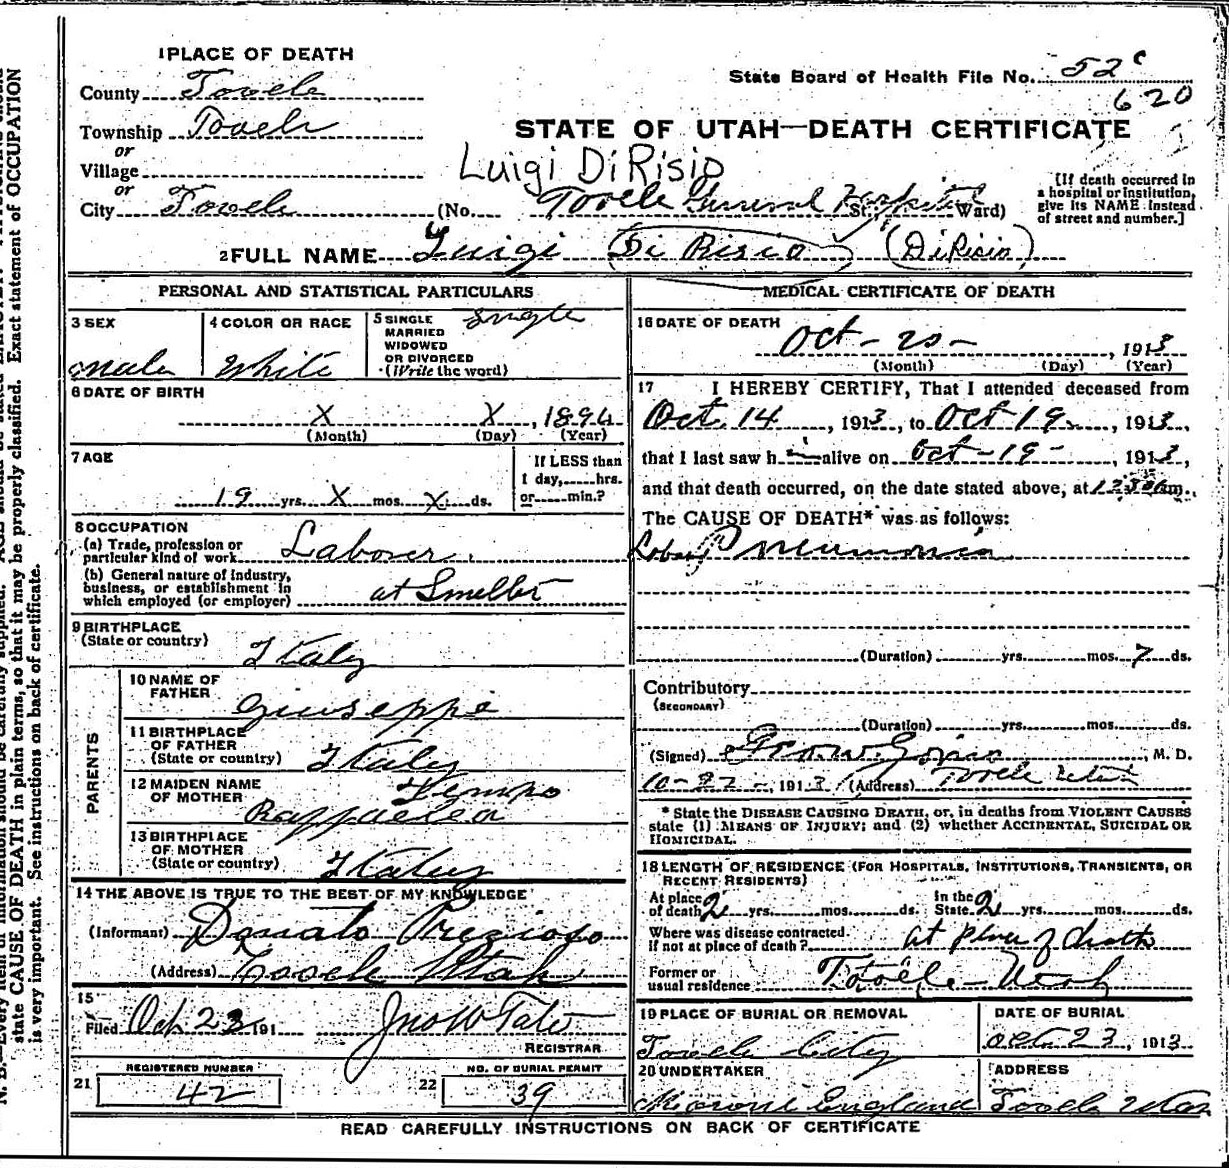 1 PLACE OF DEATH
State Board of Health File No. 52c
620
County Tooele
Township Tooele
or
Village
or
City Tooele
STATE OF UTAH—DEATH CERTIFICATE
Luigi DiRisio
(No. Tooele General Hospital St. Ward)
[If death occurred in
a hospital or institution,
give its NAME instead
of street and number.]
2 FULL NAME Luigi Di Risio (DiRisio)
PERSONAL AND STATISTICAL PARTICULARS
3 SEX
Male
4 COLOR OR RACE
White
5 SINGLE
MARRIED
WIDOWED
OR DIVORCED
(Write the word)
Single
6 DATE OF BIRTH
X X, 1894
(Month) (Day) (Year)
7 AGE
19 yrs. X mos. X ds.
If LESS than
1 day, hrs.
or min.?
8 OCCUPATION
(a) Trade, profession or
particular kind of work Laborer
(b) General nature of industry,
business, or establishment in
which employed (or employer) at Smelter
9 BIRTHPLACE
(State or country)
Italy
PARENTS
10 NAME OF
FATHER
Giuseppe
11 BIRTHPLACE
OF FATHER
(State or country)
Italy
12 MAIDEN NAME
OF MOTHER
Raffaela
13 BIRTHPLACE
OF MOTHER
(State or country)
Italy
14 THE ABOVE IS TRUE TO THE BEST OF MY KNOWLEDGE
(Informant) Donato Prezioso
(Address) Tooele Utah
15
Filed Oct 23 191 Jno W Tate
REGISTRAR
21 REGISTERED NUMBER
42
22 NO. OF BURIAL PERMIT
39
MEDICAL CERTIFICATE OF DEATH
16 DATE OF DEATH
Oct - 20 -, 1913
(Month) (Day) (Year)
17 I HEREBY CERTIFY, That I attended deceased from
Oct. 14, 1913, to Oct 19, 1913,
that I last saw him alive on Oct - 19 -, 1913,
and that death occurred, on the date stated above, at 1230am.
The CAUSE OF DEATH* was as follows:
Lobar Pneumonia
(Duration) yrs. mos. 7 ds.
Contributory
(SECONDARY)
(Duration) yrs. mos. ds.
(Signed), M. D.
10-22-1913 (Address) Tooele Utah
* State the DISEASE CAUSING DEATH, or, in deaths from VIOLENT CAUSES
state (1) MEANS OF INJURY; and (2) whether ACCIDENTAL, SUICIDAL OR
HOMICIDAL.
18 LENGTH OF RESIDENCE (FOR HOSPITALS, INSTITUTIONS, TRANSIENTS, OR
RECENT RESIDENTS)
At place
of death 2 yrs. mos. ds.
In the
State 2 yrs. mos. ds.
Where was disease contracted
if not at place of death? at place of death
Former or
usual residence Tooele - Utah
19 PLACE OF BURIAL OR REMOVAL
Tooele City
DATE OF BURIAL
Oct 23, 1913
20 UNDERTAKER
England
ADDRESS
Tooele Utah
READ CAREFULLY INSTRUCTIONS ON BACK OF CERTIFICATE
state CAUSE OF DEATH in plain terms, so that it may be properly classified. Exact statement of OCCUPATION
is very important. See instructions on back of certificate.